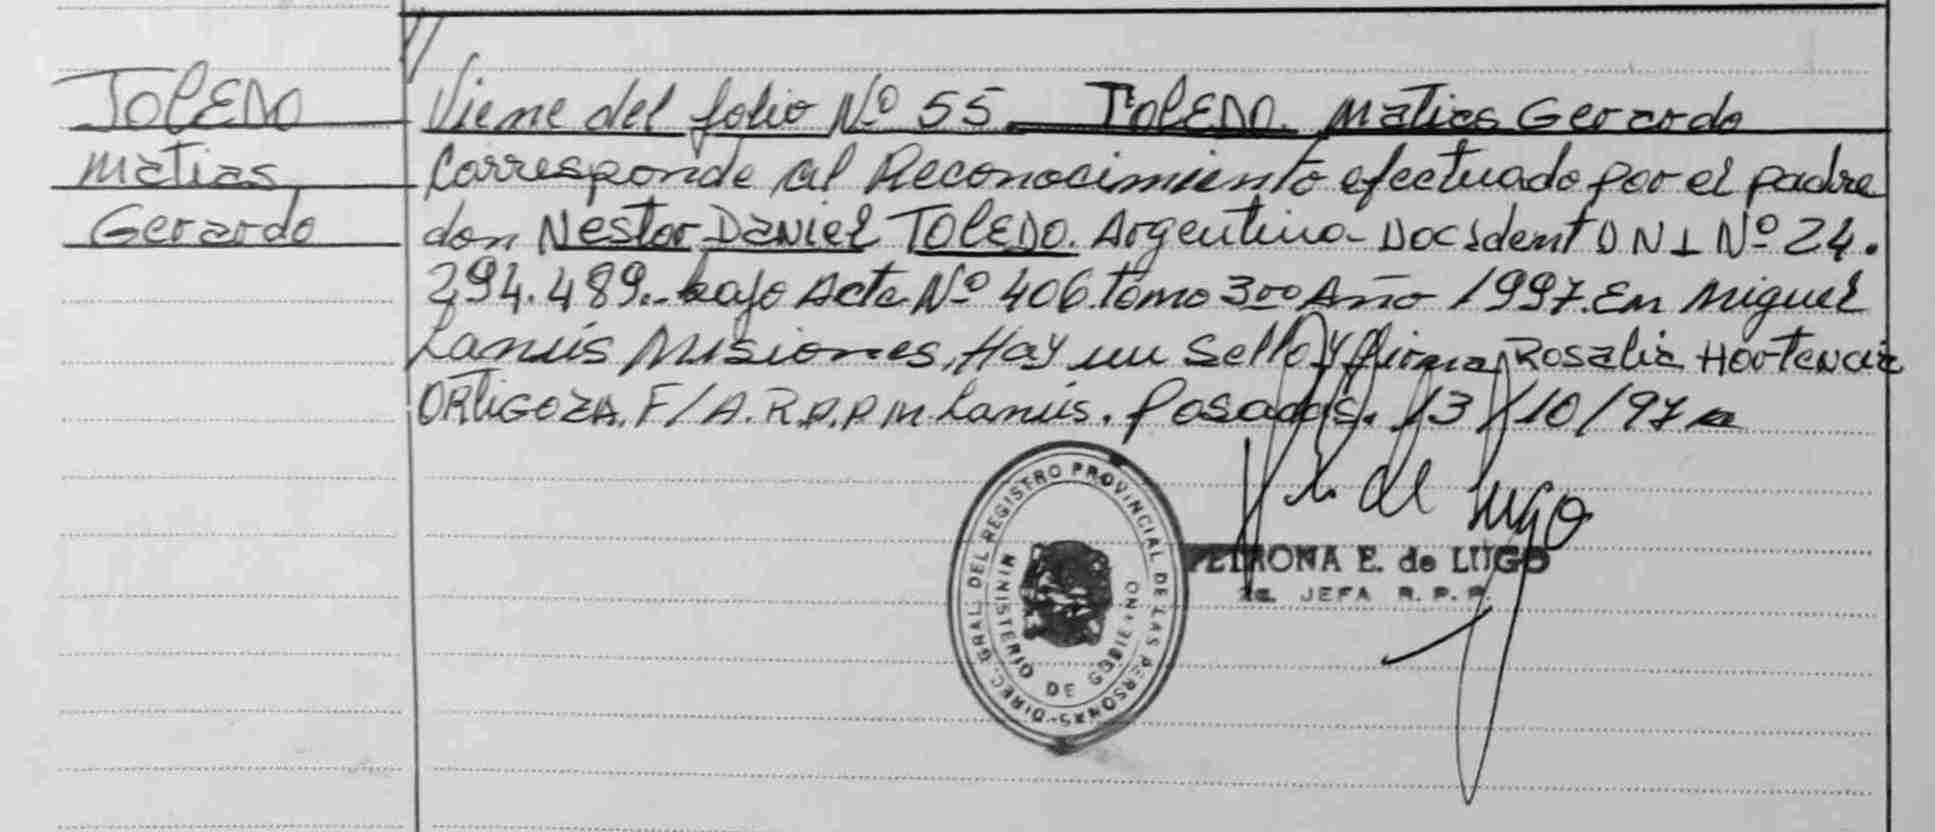 TOLEDO
Matias
Gerardo
Viene del folio Nº 55 TOLEDO. Matias Gerardo
Corresponde al Reconocimiento efectuado por el padre
don Nestor DANIEL TOLEDO. Argentino- Doc Ident D N I Nº 24.
294.489.- bajo Acta Nº 406 tomo 3º Año 1997. En Miguel
Lanús Misiones, Hay un Sello y firma Rosalia Hortencia
ORTIGOZA. F/A.R.P.P M. Lanús. Posadas. 13/10/97
de Lugo
PETRONA E. de LUGO
JEFA R. P. P.
DIREC. GRAL. DEL REGISTRO PROVINCIAL DE LAS PERSONAS
MINISTERIO DE GOBIERNO